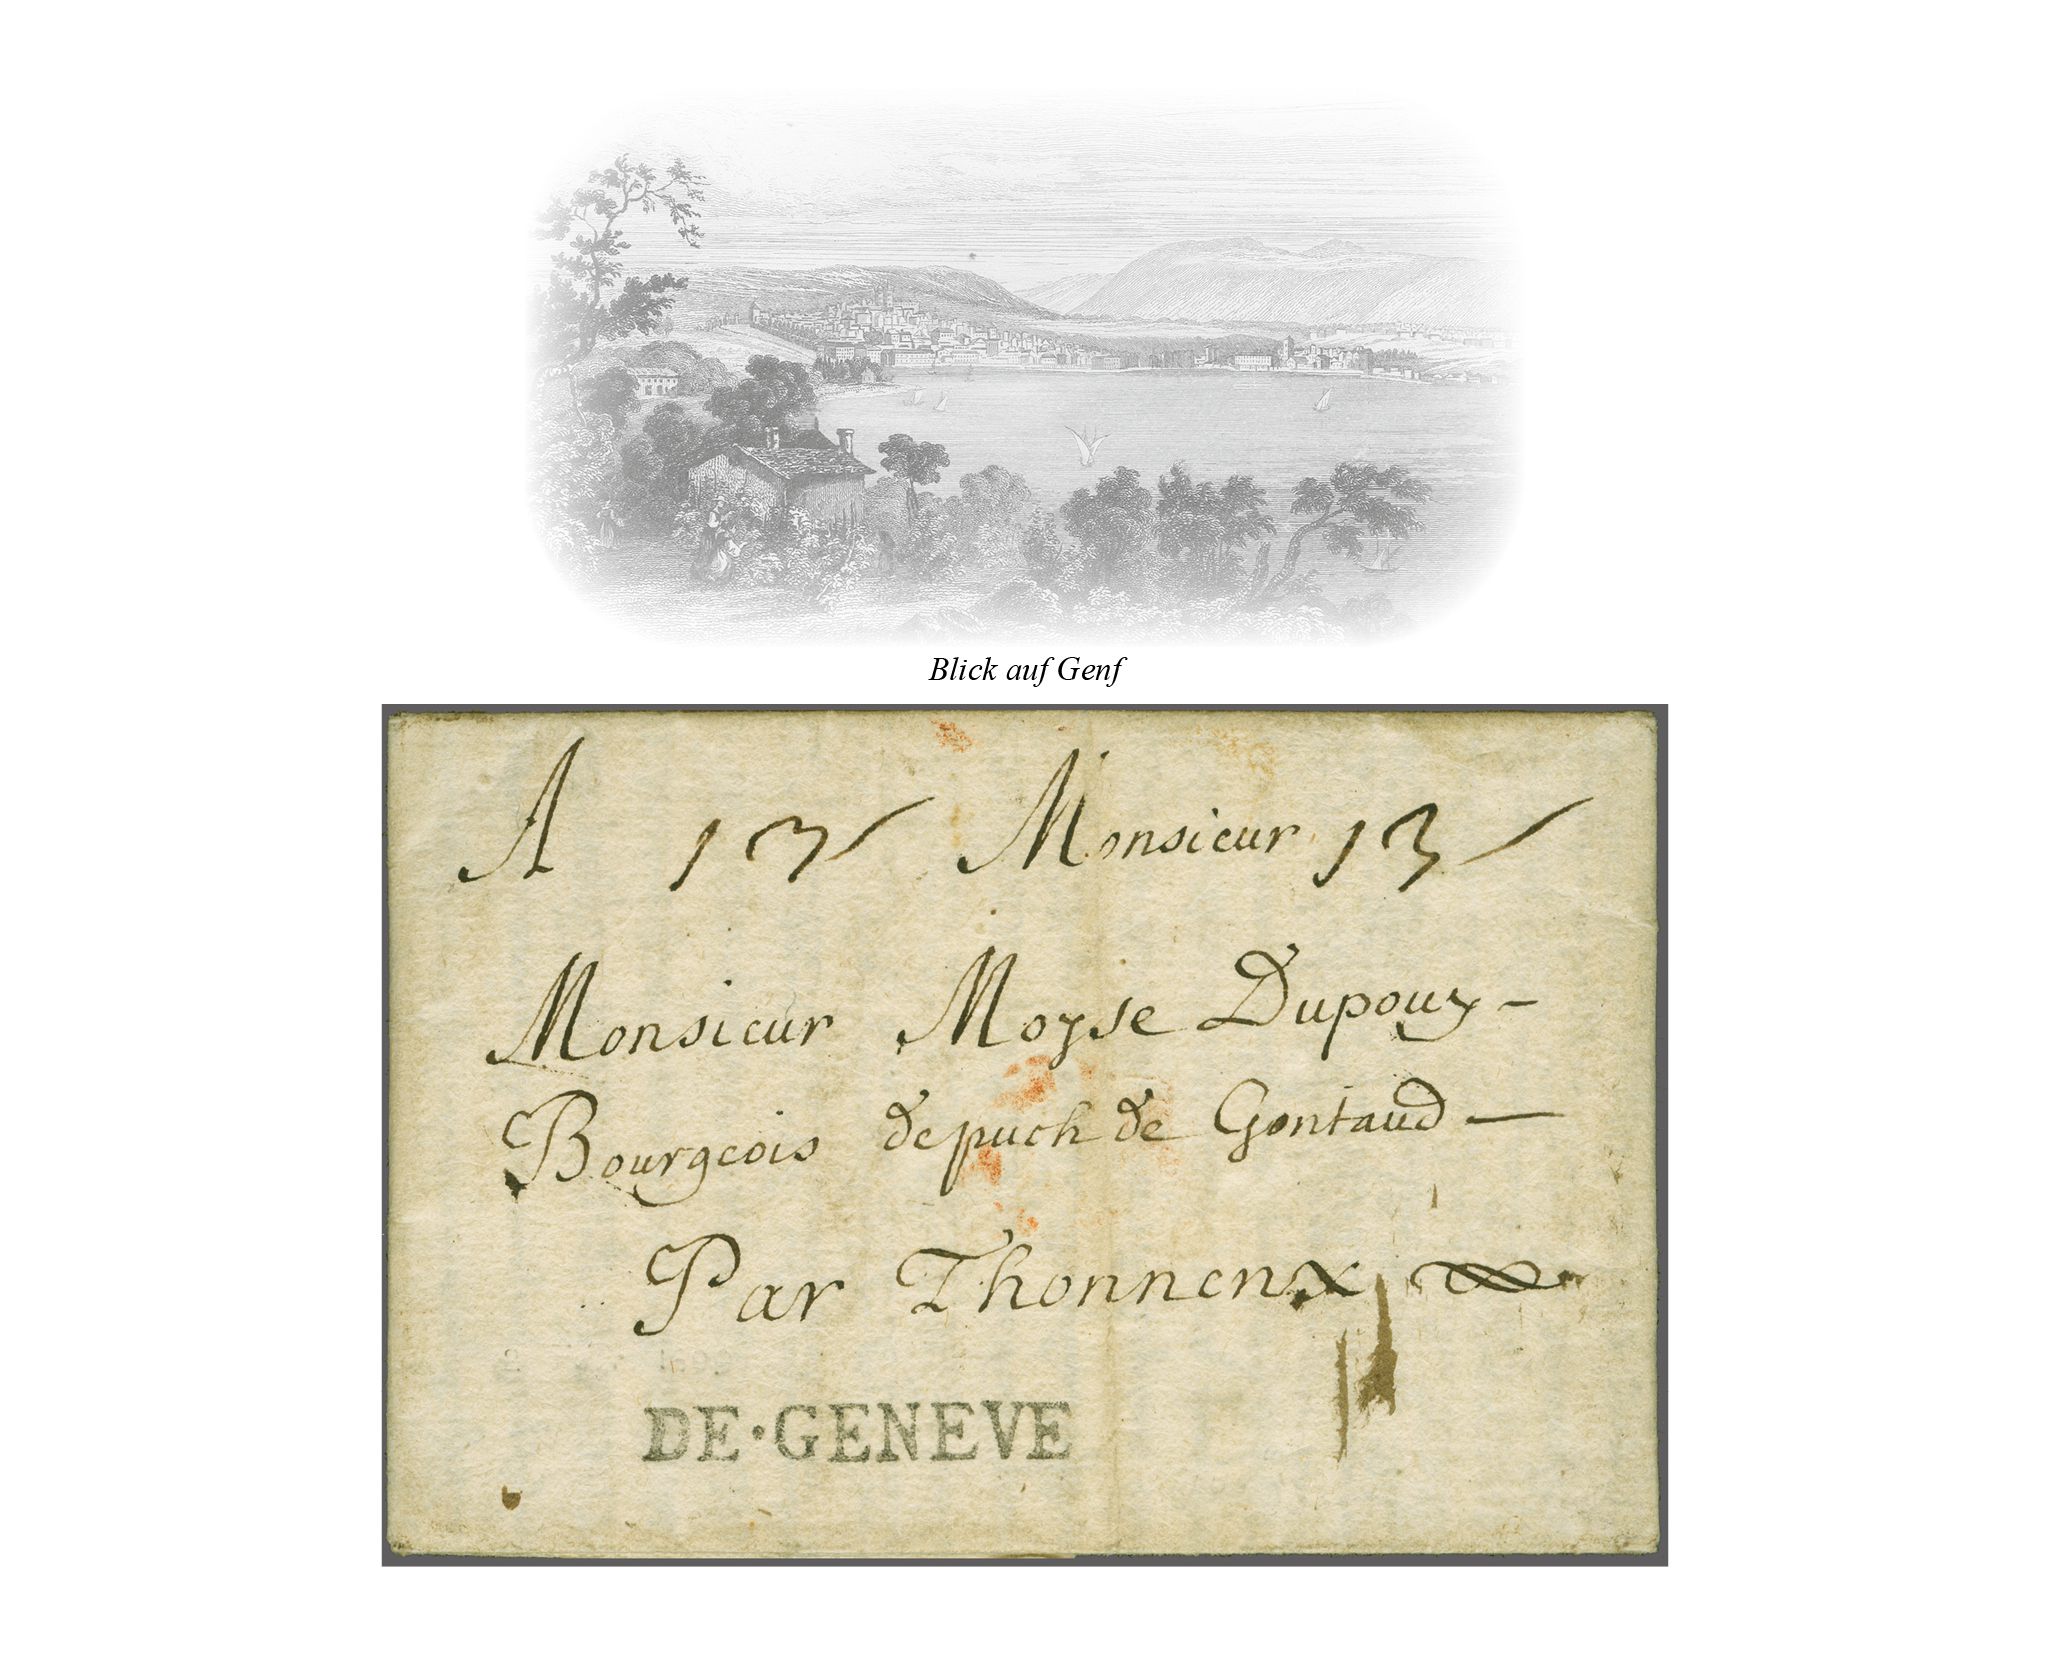 Blick auf Genf
A 13 Monsieur 13
Monsieur Moyse Dupouy -
Bourgeois depuch de Gontaud -
Par Thonnenx
DE·GENEVE